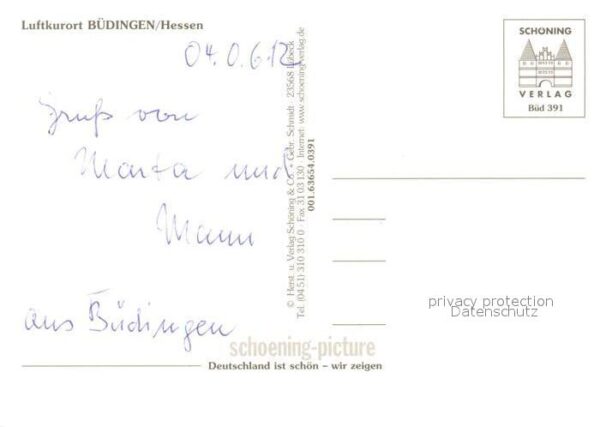 Luftkurort BÜDINGEN/Hessen
04.0.6.12
Gruß von
Marta und
Mann
aus Büdingen
© Herst. u. Verlag Schöning & Co. + Gebr. Schmidt · 23568 Lübeck
Tel. (04 51) 310 310 0 · Fax 31 03 130 · Internet: www.schoeningverlag.de
001.63654.0391
SCHÖNING
VERLAG
Büd 391
privacy protection
Datenschutz
schoening-picture
Deutschland ist schön – wir zeigen